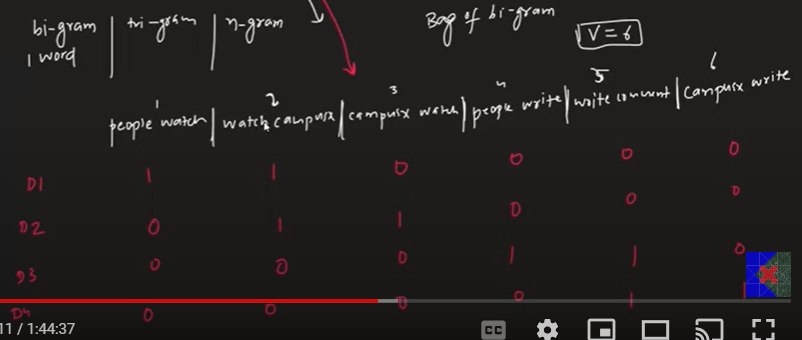 bi-gram | tri-gram | n-gram Bag of bi-gram
1 word V=6
1 2 3 4 5 6
people watch | watch campusx | campusx watch | people write | write comment | campusx write
D1 1 1 0 0 0 0
D2 0 1 1 0 0 0
D3 0 0 0 1 1 0
D4 0 0 0 0 1 1
11 / 1:44:37 CC